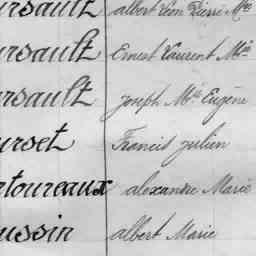 ursault albert Léon Pierre Mie
ursault Ernest Laurent Mie
ursault Joseph Mie Eugène
urset Francis Julien
rtoureaux alexandre Marie
ussin albert Marie